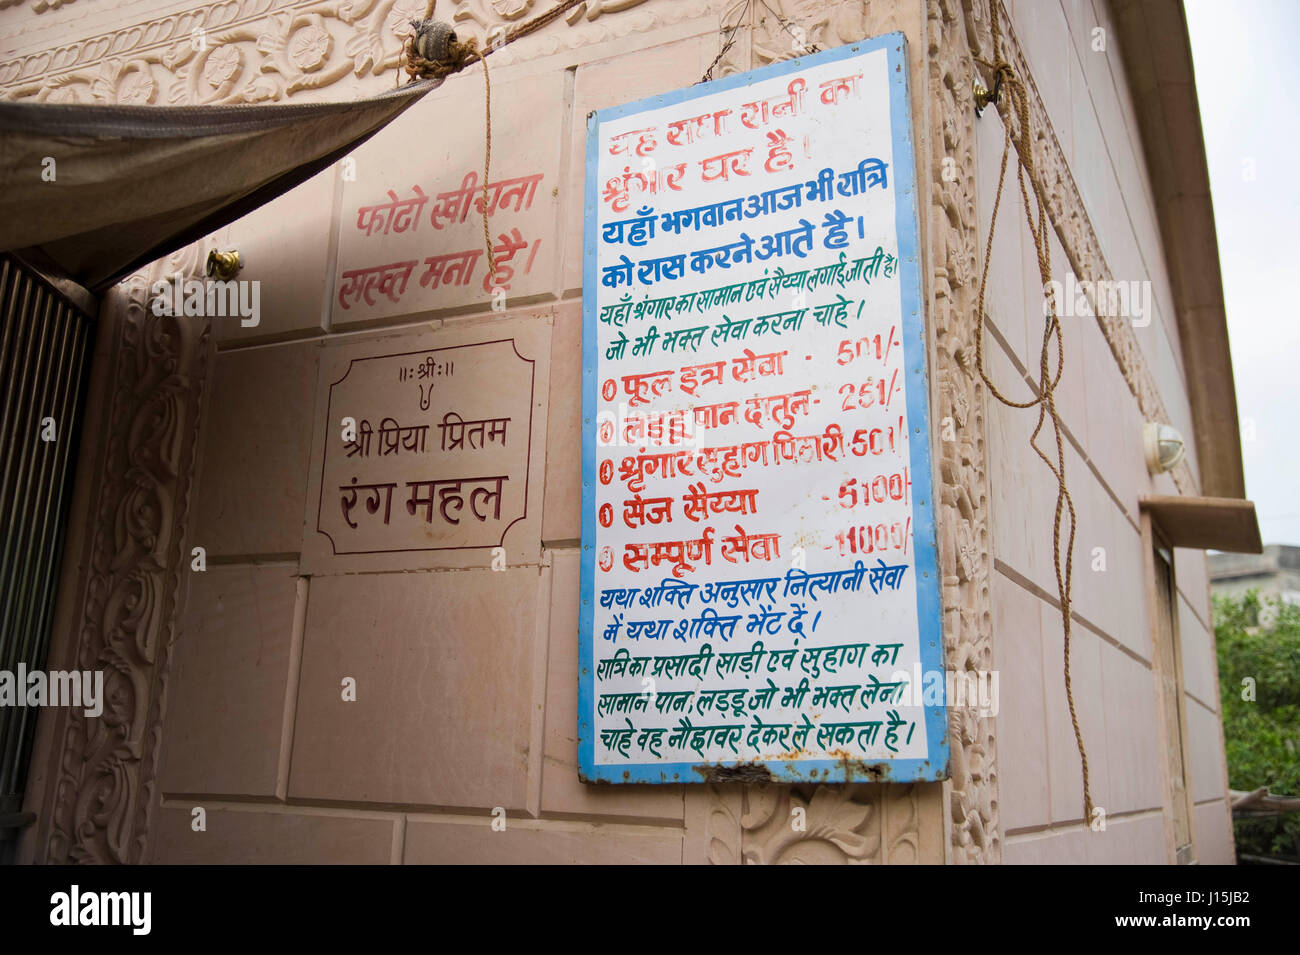 फोटो खींचना
सख्त मना है।
॥ः श्रीः॥
श्री प्रिया प्रितम
रंग महल
यह राधा रानी का
श्रृंगार घर है।
यहाँ भगवान आज भी रात्रि
को रास करने आते है।
यहाँ श्रृंगार का सामान एवं सैय्या लगाई जाती है।
जो भी भक्त सेवा करना चाहे।
फूल इत्र सेवा - 501/-
लड्डू पान दातुन - 251/-
श्रृंगार सुहाग पिटारी - 501/-
सेज सैय्या - 5100/-
सम्पूर्ण सेवा - 11000/-
यथा शक्ति अनुसार नित्यानी सेवा
में यथा शक्ति भेंट दें।
रात्रि का प्रसादी साड़ी एवं सुहाग का
सामान पान, लड्डू जो भी भक्त लेना
चाहे वह नौछावर देकर ले सकता है।
alamy
alamy stock photo
J15JB2
www.alamy.com